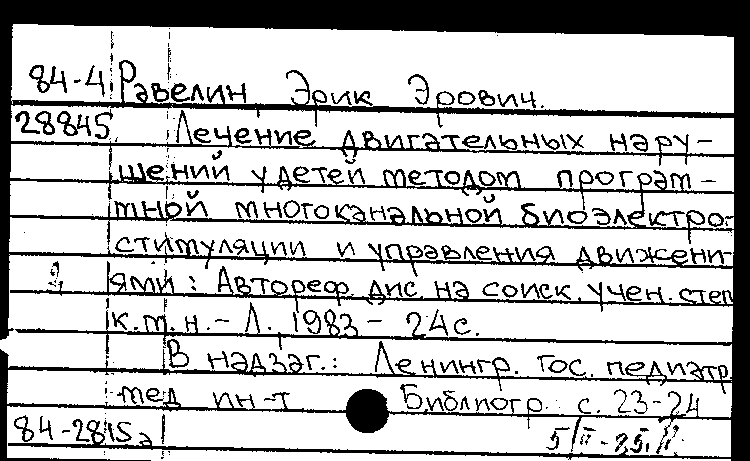 84-4 Рэвелин Эрик Эрович.
28845 Лечение двигательных нару-
шений у детей методом програм-
мной многоканальной биоэлектро-
стимуляции и управления движени-
ями: Автореф. дис. на соиск. учен. степ
к.м.н. - Л., 1983 - 24 с.
В надзаг.: Ленингр. гос. педиатр.
мед ин-т Библиогр. с. 23-24
84-2815а 5/II-85.